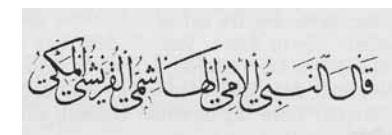 قَالَ النَّبِيُّ الْأُمِّيُّ الْهَاشِمِيُّ الْقُرَيْشِيُّ الْمَكِّيُّ